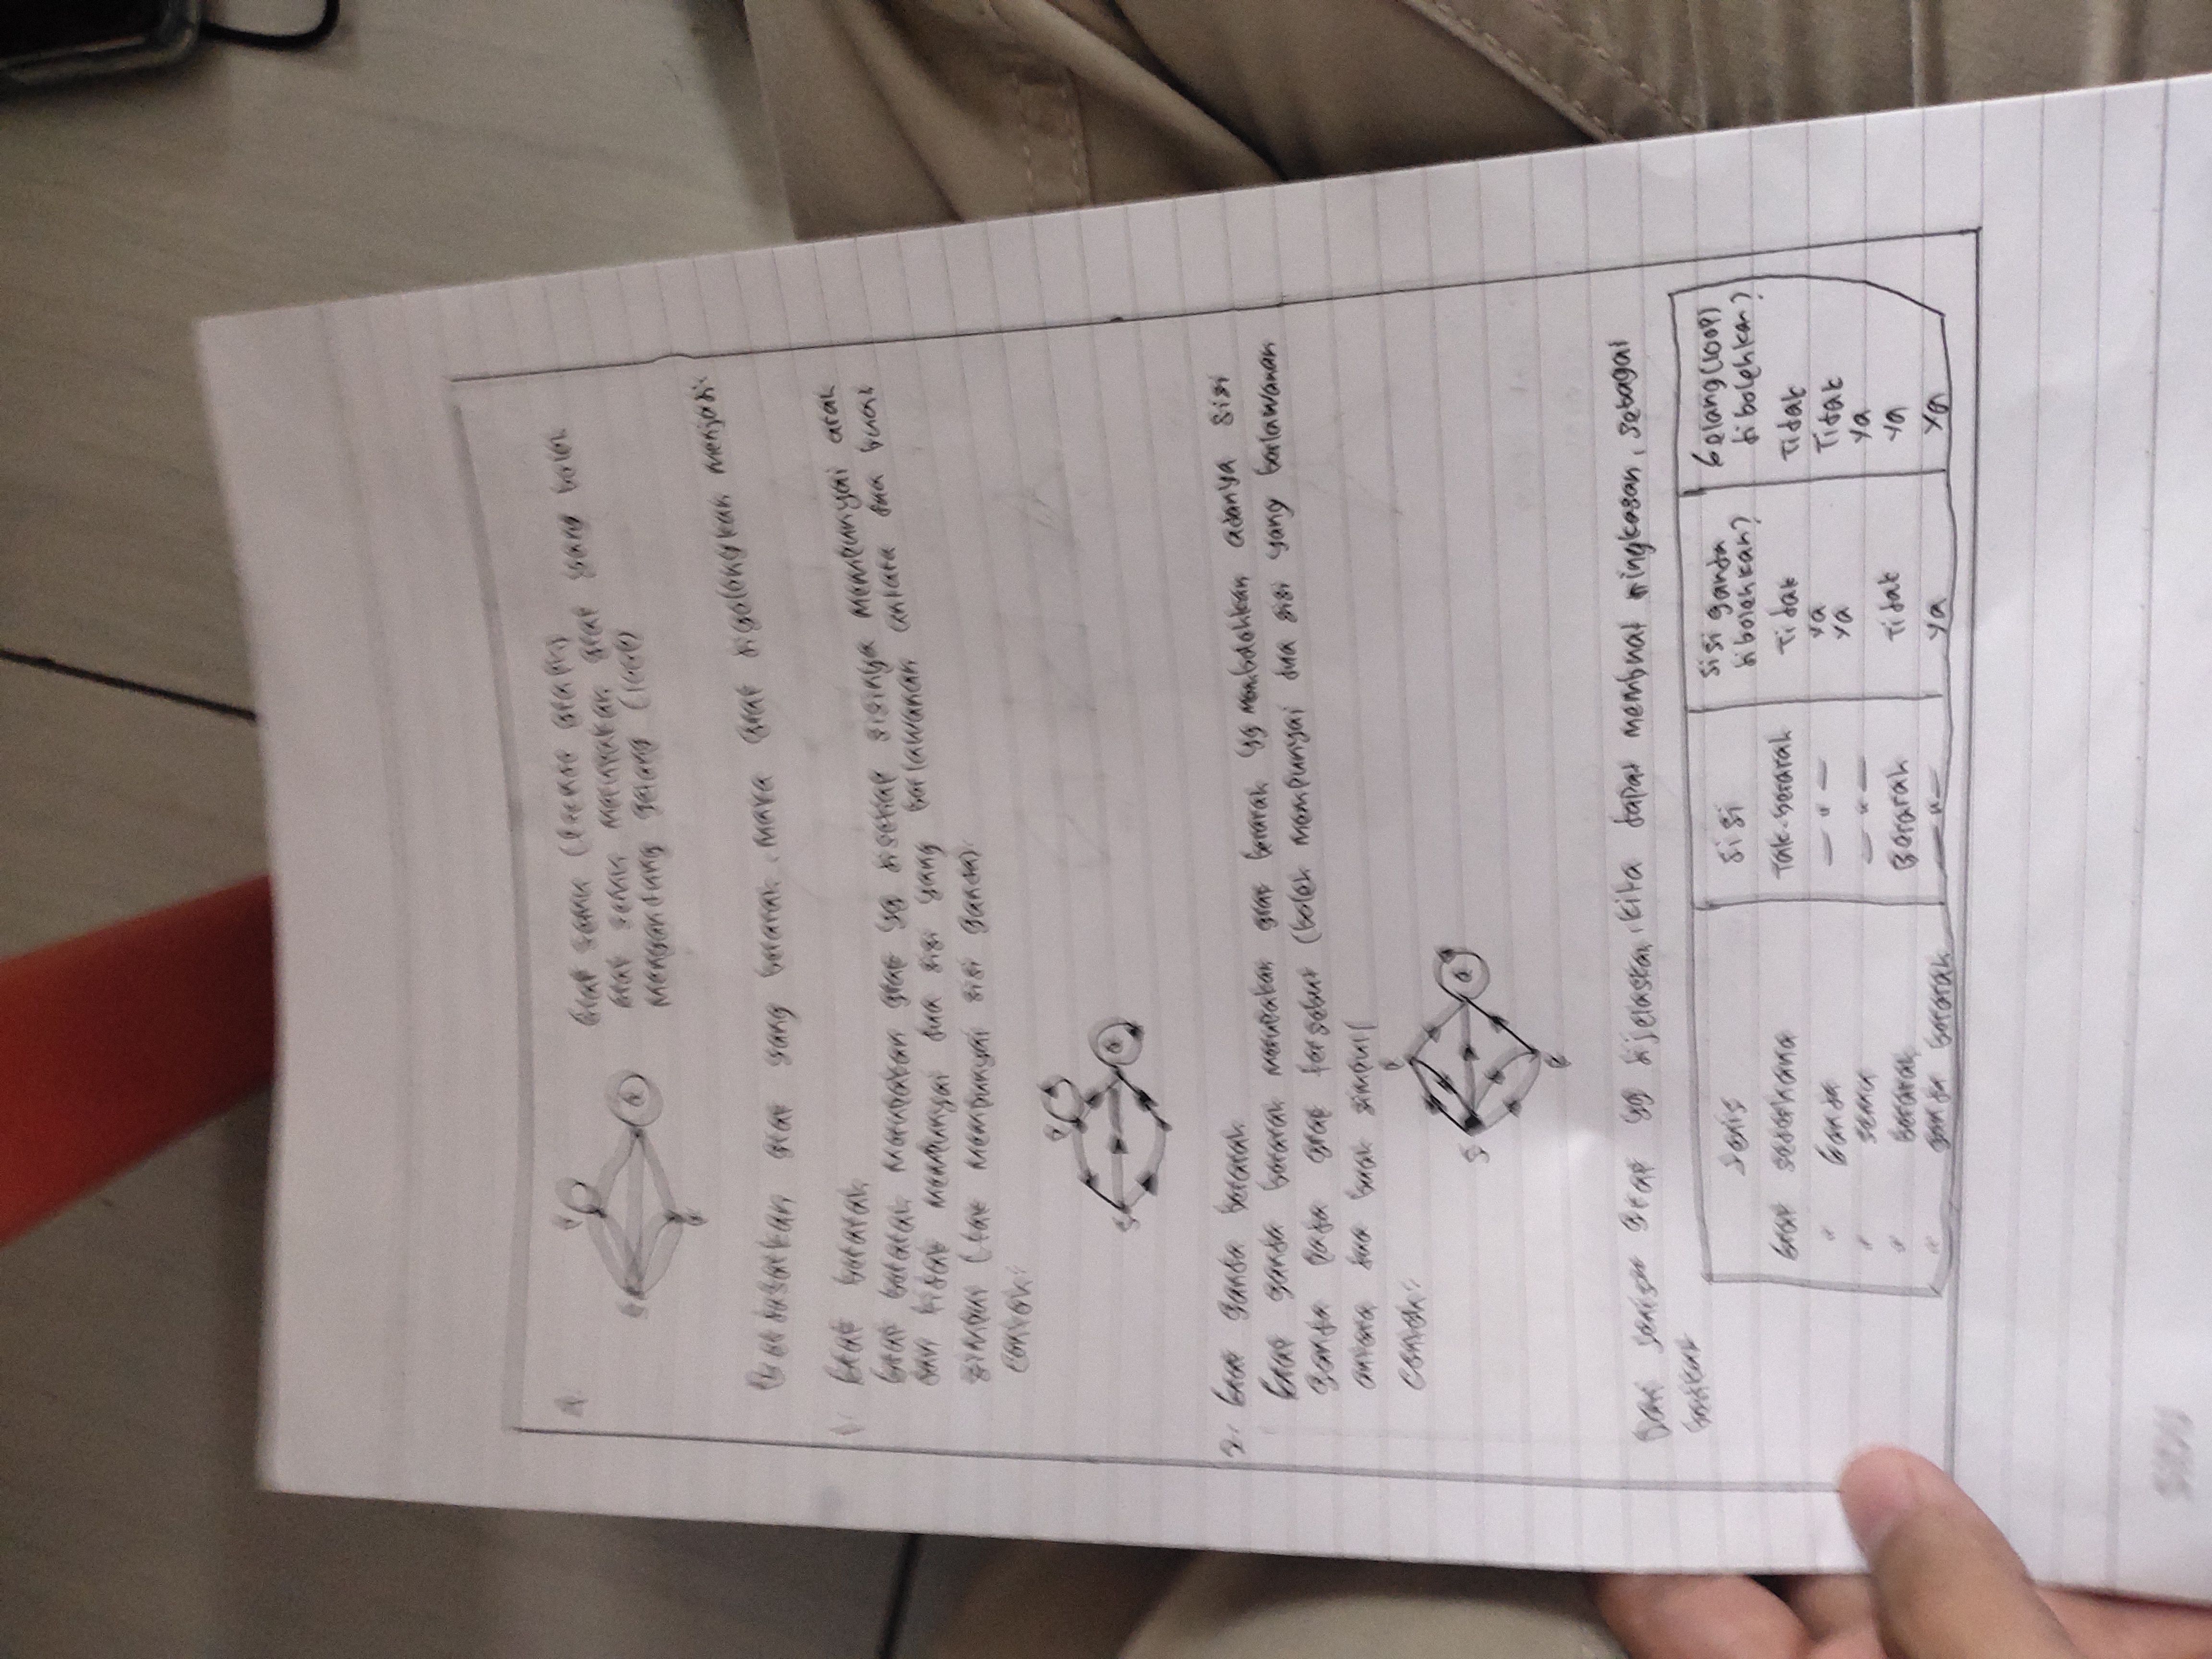 Graf semu (Pseudo graph)
Graf semu merupakan graf yang boleh
mengandung gelang (loop)
Berdasarkan graf yang berarah, maka graf digolongkan menjadi:
1. Graf berarah
Graf berarah merupakan graf yg disetiap sisinya mempunyai arah
dan tidak mempunyai dua sisi yang berlawanan antara dua buah
simpul (tak mempunyai sisi ganda).
Contoh:
2. Graf ganda berarah
Graf ganda berarah merupakan graf berarah yg membolehkan adanya sisi
ganda pada graf tersebut (boleh mempunyai dua sisi yang berlawanan
antara dua buah simpul(
Contoh:
Dari jenis graf yg dijelaskan, kita dapat membuat ringkasan, sebagai
berikut
Jenis Sisi Sisi ganda dibolehkan? Gelang (loop) dibolehkan?
Graf sederhana Tak-berarah Tidak Tidak
" Ganda — " — Ya Tidak
" semu — " — Ya Ya
" berarah Berarah Tidak Ya
" ganda berarah — " — Ya Ya